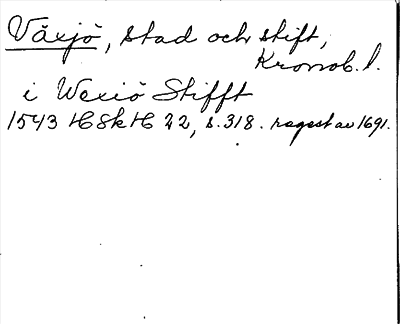 Växjö, stad och stift,
Kronob. l.
i Wexiö Stifft
1543 HSkH 22, s. 318. regest av 1691.